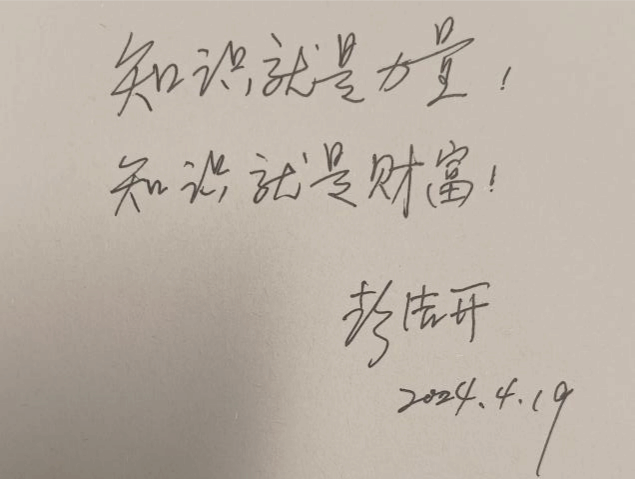 知识就是力量！
知识就是财富！
彭洁开
2024.4.19